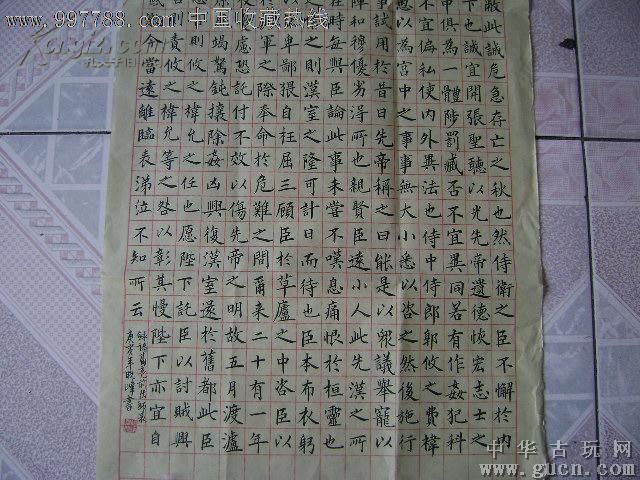 www.997788.com 中国收藏热线
敝此誠危急存亡之秋也然侍衛之臣不懈於內
下也誠宜開張聖聽以光先帝遺德恢宏志士之
中俱為一體陟罰臧否不宜異同若有作姦犯科
不宜偏私使內外異法也侍中侍郎郭攸之費禕
愚以為宮中之事事無大小悉以咨之然後施行
事試用於昔日先帝稱之曰能是以衆議舉寵以
陣和穆優劣得所也親賢臣遠小人此先漢之所
在時每與臣論此事未嘗不嘆息痛恨於桓靈也
之則漢室之隆可計日而待也臣本布衣躬
以卑鄙猥自枉屈三顧臣於草廬之中咨臣以
軍之際奉命於危難之間爾来二十有一年
慮恐託付不效以傷先帝之明故五月渡瀘
竭駑鈍攘除姦凶興復漢室還於舊都此臣
則攸之禕允之任也願陛下託臣以討賊興
則責攸之禕允等之咎以彰其慢陛下亦宜自
感今當遠離臨表涕泣不知所云
錄諸葛亮前出師表
年書
中华古玩网
www.gucn.com